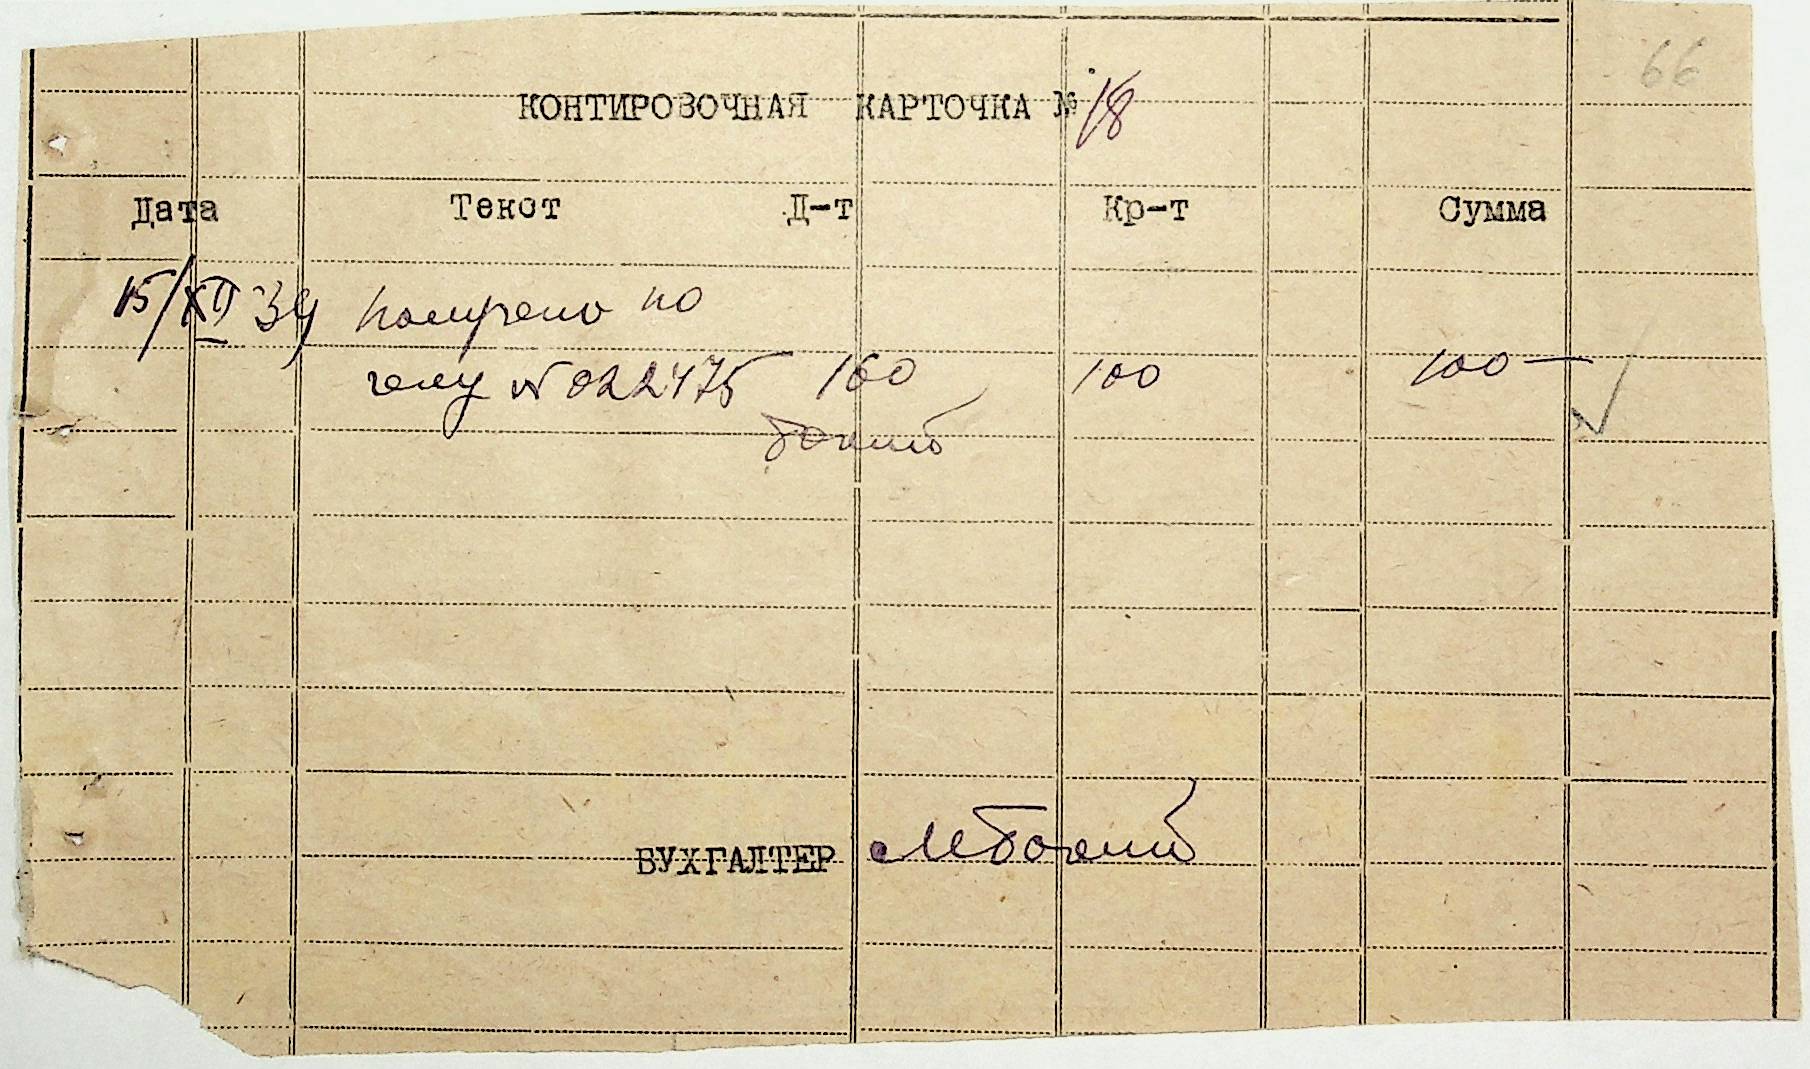 66
КОНТИРОВОЧНАЯ КАРТОЧКА № 18
Дата Текст Д-т Кр-т Сумма
15/XII 39 Получено по
чеку № 022475 160 100 100 —
БУХГАЛТЕР